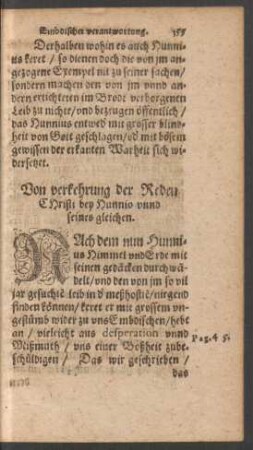 Embdischer verantwortung. 155
Derhalben wohin es auch Hunni-
us keret / so dienen doch die von jm an-
gezogne Exempel nit zu seiner sachen /
sondern machen den von jm vnnd an-
dern ertichteten im Brodt verborgenen
Leib zu nichte / vnd bezeugen öffentlich /
das Hunnius entwed mit grosser blind-
heit von Gott geschlagen / od mit bösem
gewissen der erkanten Warheit sich wi-
dersetzet.
Von verkehrung der Reden
Christi bey Hunnio vnnd
seines gleichen.
NAch dem nun Hunni-
us Himmel vnd Erde mit
seinen gedäcken durchwä-
delt / vnd den von jm so vil
jar gesuchtē leib in d meßhostiē / nirgend
finden können / keret er mit grossem vn-
gestümb wider zu vns Embdischen / hebt
an / vieleicht aus desperation vnnd
Mißmuth / vns einer Boßheit zube-
schüldigen / Das wir geschrieben /
Pag. 4 5.
das